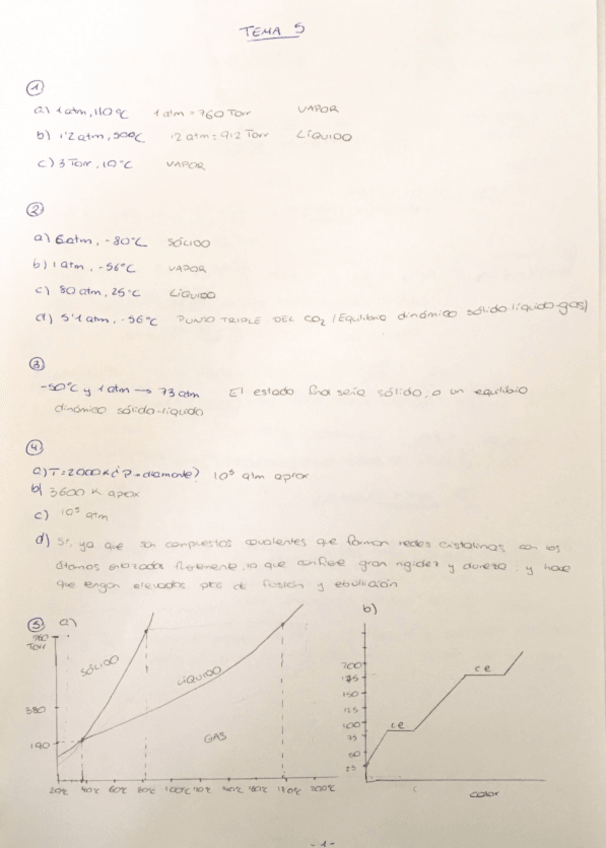 TEMA 5
①
a) 1 atm, 110ºC 1 atm = 760 Torr VAPOR
b) 1'2 atm, 50ºC 1'2 atm = 912 Torr LÍQUIDO
c) 3 Torr, 10ºC VAPOR
②
a) 6 atm, -80ºC SÓLIDO
b) 1 atm, -56ºC VAPOR
c) 80 atm, 25ºC LÍQUIDO
d) 5'1 atm, -56ºC PUNTO TRIPLE DEL CO₂ (Equilibrio dinámico sólido-líquido-gas)
③
-50ºC y 1 atm → 73 atm El estado final sería sólido, o un equilibrio
dinámico sólido-líquido
④
a) T=2000K ¿P→diamante? 10⁵ atm aprox
b) 3600 K aprox
c) 10⁵ atm
d) Sí, ya que son compuestos covalentes que forman redes cristalinas con los
átomos enlazados fuertemente, lo que confiere gran rigidez y dureza, y hace
que tengan elevados ptos de fusión y ebullición
⑤ a) b)
760
Torr
SÓLIDO
LÍQUIDO
380
GAS
190
20ºC 40ºC 60ºC 80ºC 100ºC 200ºC
200
175
150
125
100
75
50
25
ce
ce
calor
-1-